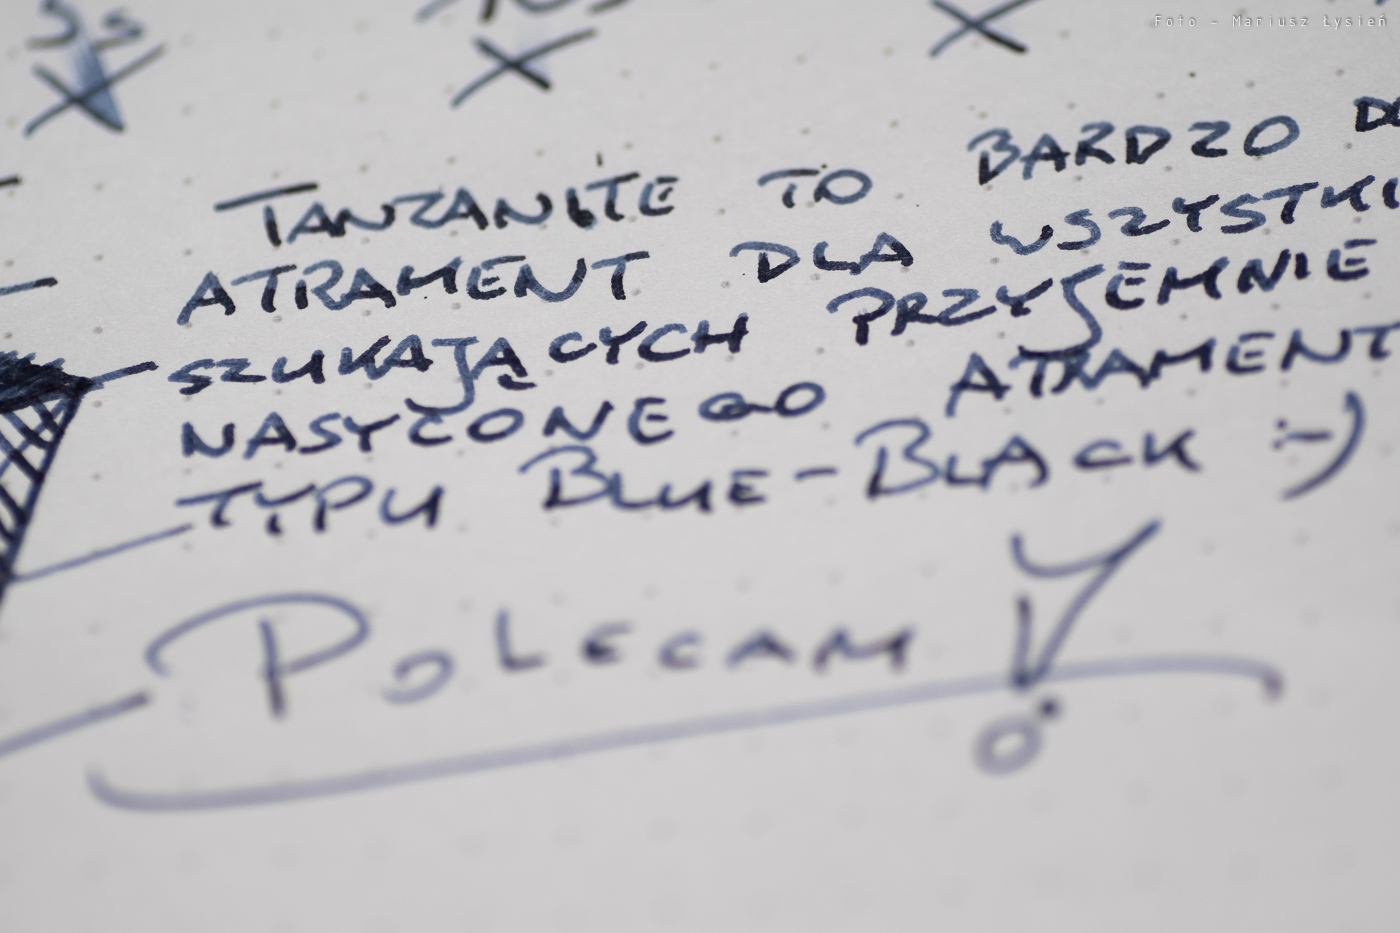 Foto - Mariusz Łysień
TANZANITE TO BARDZO
ATRAMENT DLA
SZUKAJĄCYCH PRZYJEMNIE
NASYCONEGO ATRAMENT
TYPU BLUE-BLACK :-)
POLECAM!